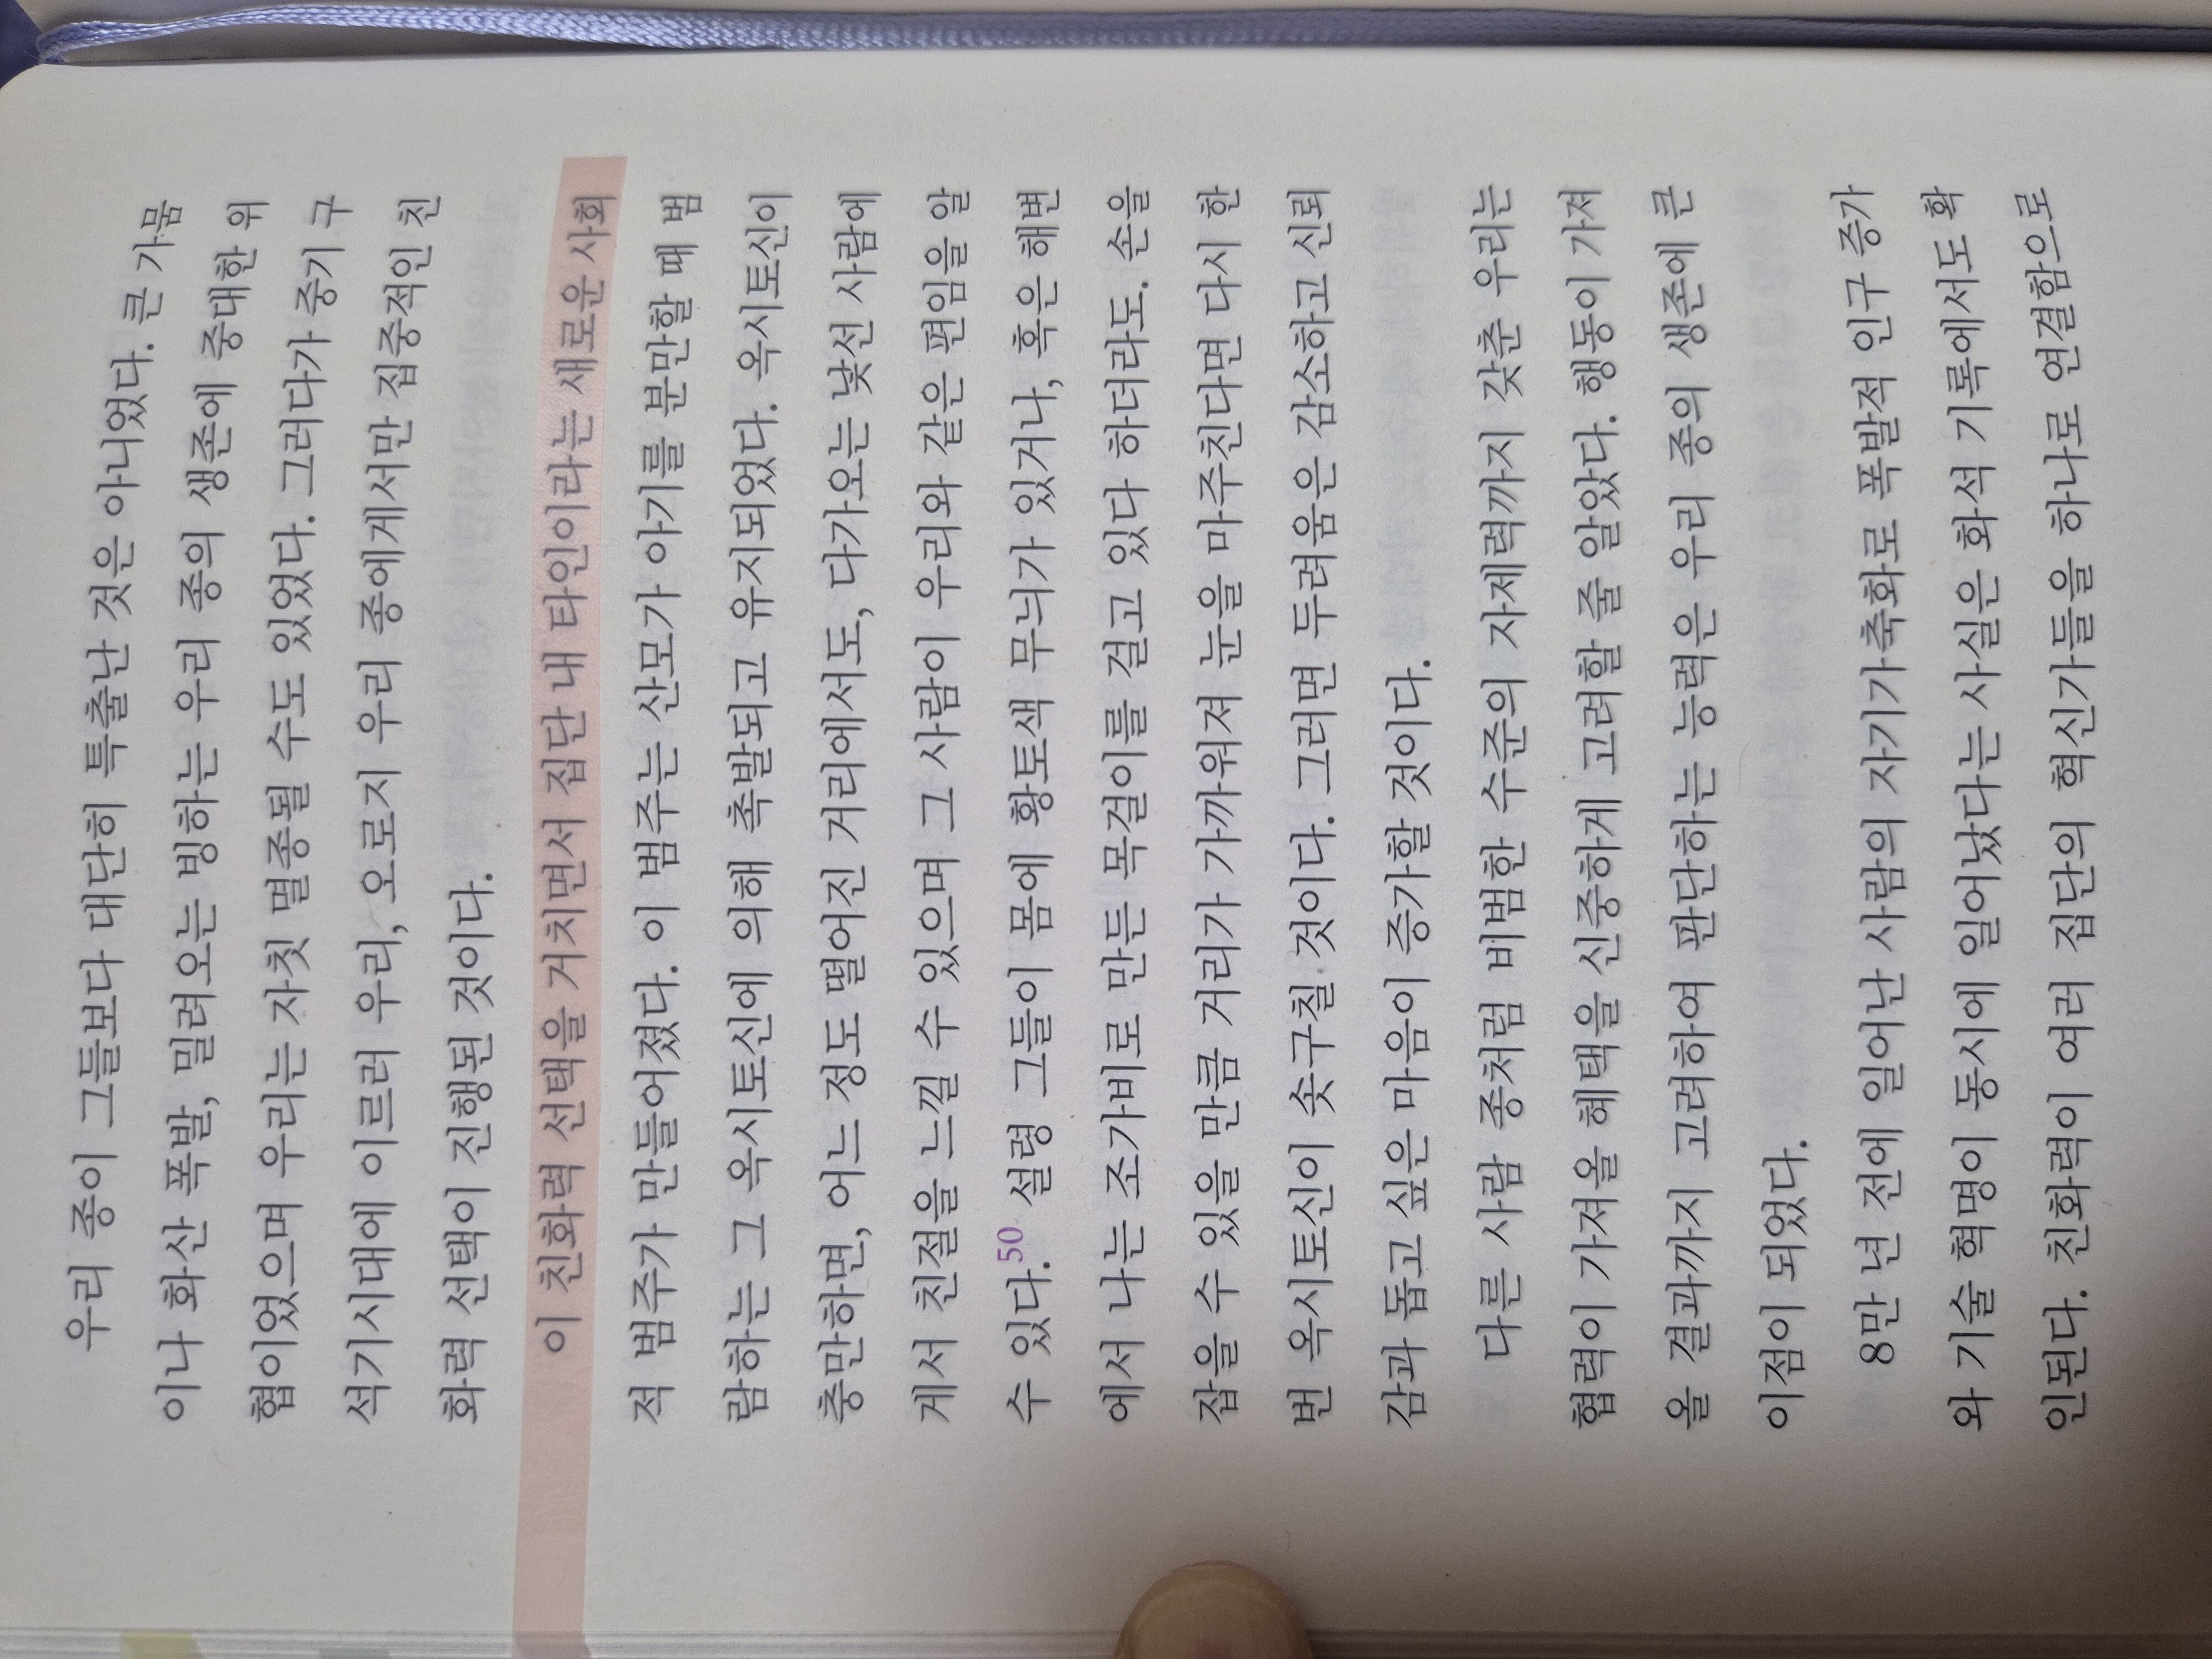 우리 종이 그들보다 대단히 특출난 것은 아니었다. 큰 가뭄
이나 화산 폭발, 밀려오는 빙하는 우리 종의 생존에 중대한 위
협이었으며 우리는 자칫 멸종될 수도 있었다. 그러다가 중기 구
석기시대에 이르러 우리, 오로지 우리 종에게서만 집중적인 친
화력 선택이 진행된 것이다.
이 친화력 선택을 거치면서 집단 내 타인이라는 새로운 사회
적 범주가 만들어졌다. 이 범주는 산모가 아기를 분만할 때 범
람하는 그 옥시토신에 의해 촉발되고 유지되었다. 옥시토신이
충만하면, 어느 정도 떨어진 거리에서도, 다가오는 낯선 사람에
게서 친절을 느낄 수 있으며 그 사람이 우리와 같은 편임을 알
수 있다.50 설령 그들이 몸에 황토색 무늬가 있거나, 혹은 해변
에서 나는 조가비로 만든 목걸이를 걸고 있다 하더라도. 손을
잡을 수 있을 만큼 거리가 가까워져 눈을 마주친다면 다시 한
번 옥시토신이 솟구칠 것이다. 그러면 두려움은 감소하고 신뢰
감과 돕고 싶은 마음이 증가할 것이다.
다른 사람 종처럼 비범한 수준의 자제력까지 갖춘 우리는
협력이 가져올 혜택을 신중하게 고려할 줄 알았다. 행동이 가져
올 결과까지 고려하여 판단하는 능력은 우리 종의 생존에 큰
이점이 되었다.
8만 년 전에 일어난 사람의 자기가축화로 폭발적 인구 증가
와 기술 혁명이 동시에 일어났다는 사실은 화석 기록에서도 확
인된다. 친화력이 여러 집단의 혁신가들을 하나로 연결함으로